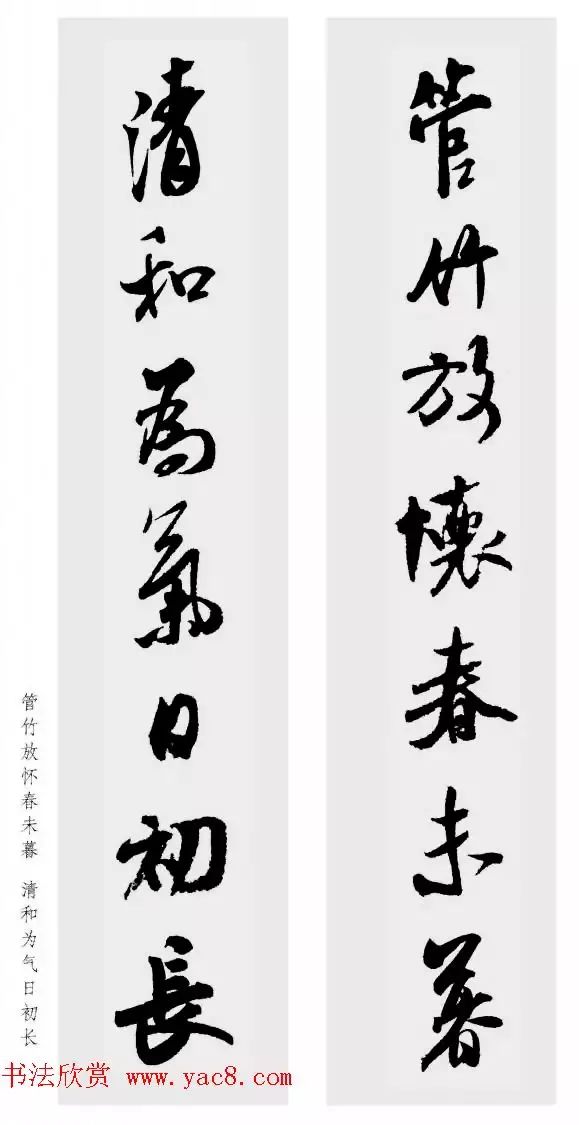 管竹放懷春未暮
清和為氣日初長
管竹放怀春未暮 清和为气日初长
书法欣赏 www.yac8.com